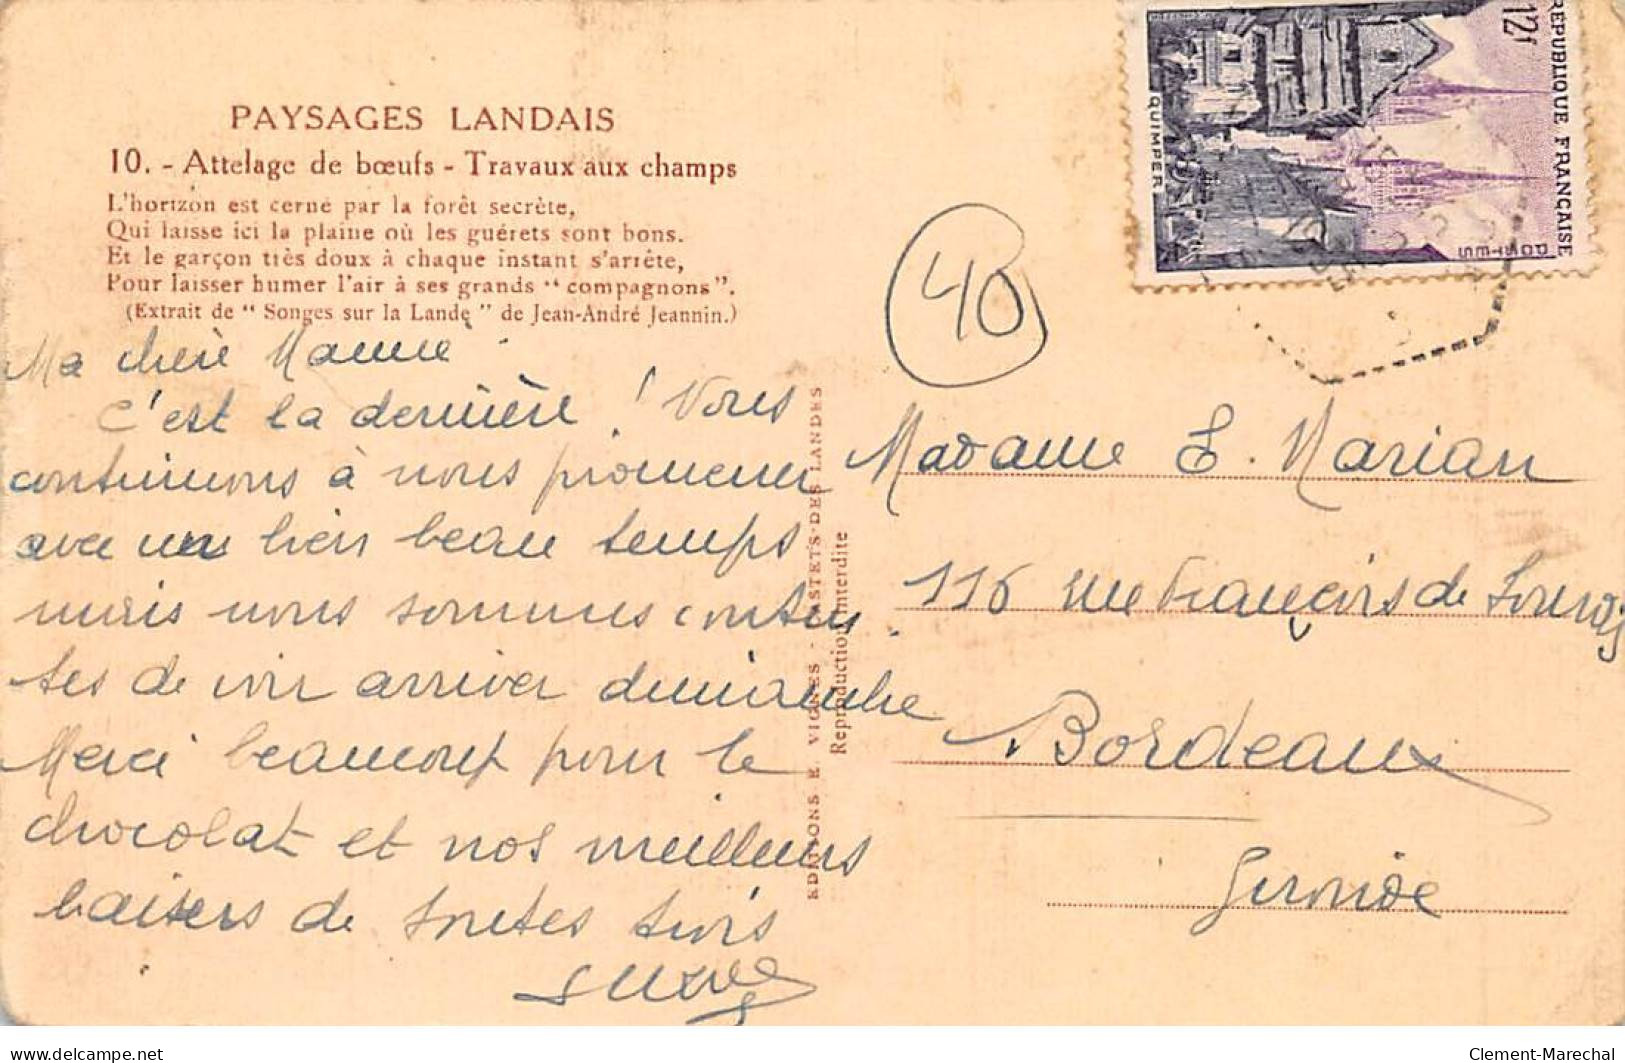 PAYSAGES LANDAIS
10. - Attelage de bœufs - Travaux aux champs
L'horizon est cerné par la forêt secrète,
Qui laisse ici la plaine où les guérets sont bons.
Et le garçon très doux à chaque instant s'arrête,
Pour laisser humer l'air à ses grands " compagnons ".
(Extrait de " Songes sur la Lande " de Jean-André Jeannin.)
Ma chère Mamie
C'est la dernière ! Nous
continuons à nous promener
avec un bien beau temps
mais nous sommes conten
tes de voir arriver dimanche
Merci beaucoup pour le
chocolat et nos meilleurs
baisers de toutes trois
EDITIONS E. VIGNES - CASTETS-DES-LANDES
Reproduction interdite
12f
REPUBLIQUE FRANÇAISE
POSTES
QUIMPER
40
Madame E. Marian
116 rue François de Sourdis
Bordeaux
Gironde
www.delcampe.net
Clement-Marechal